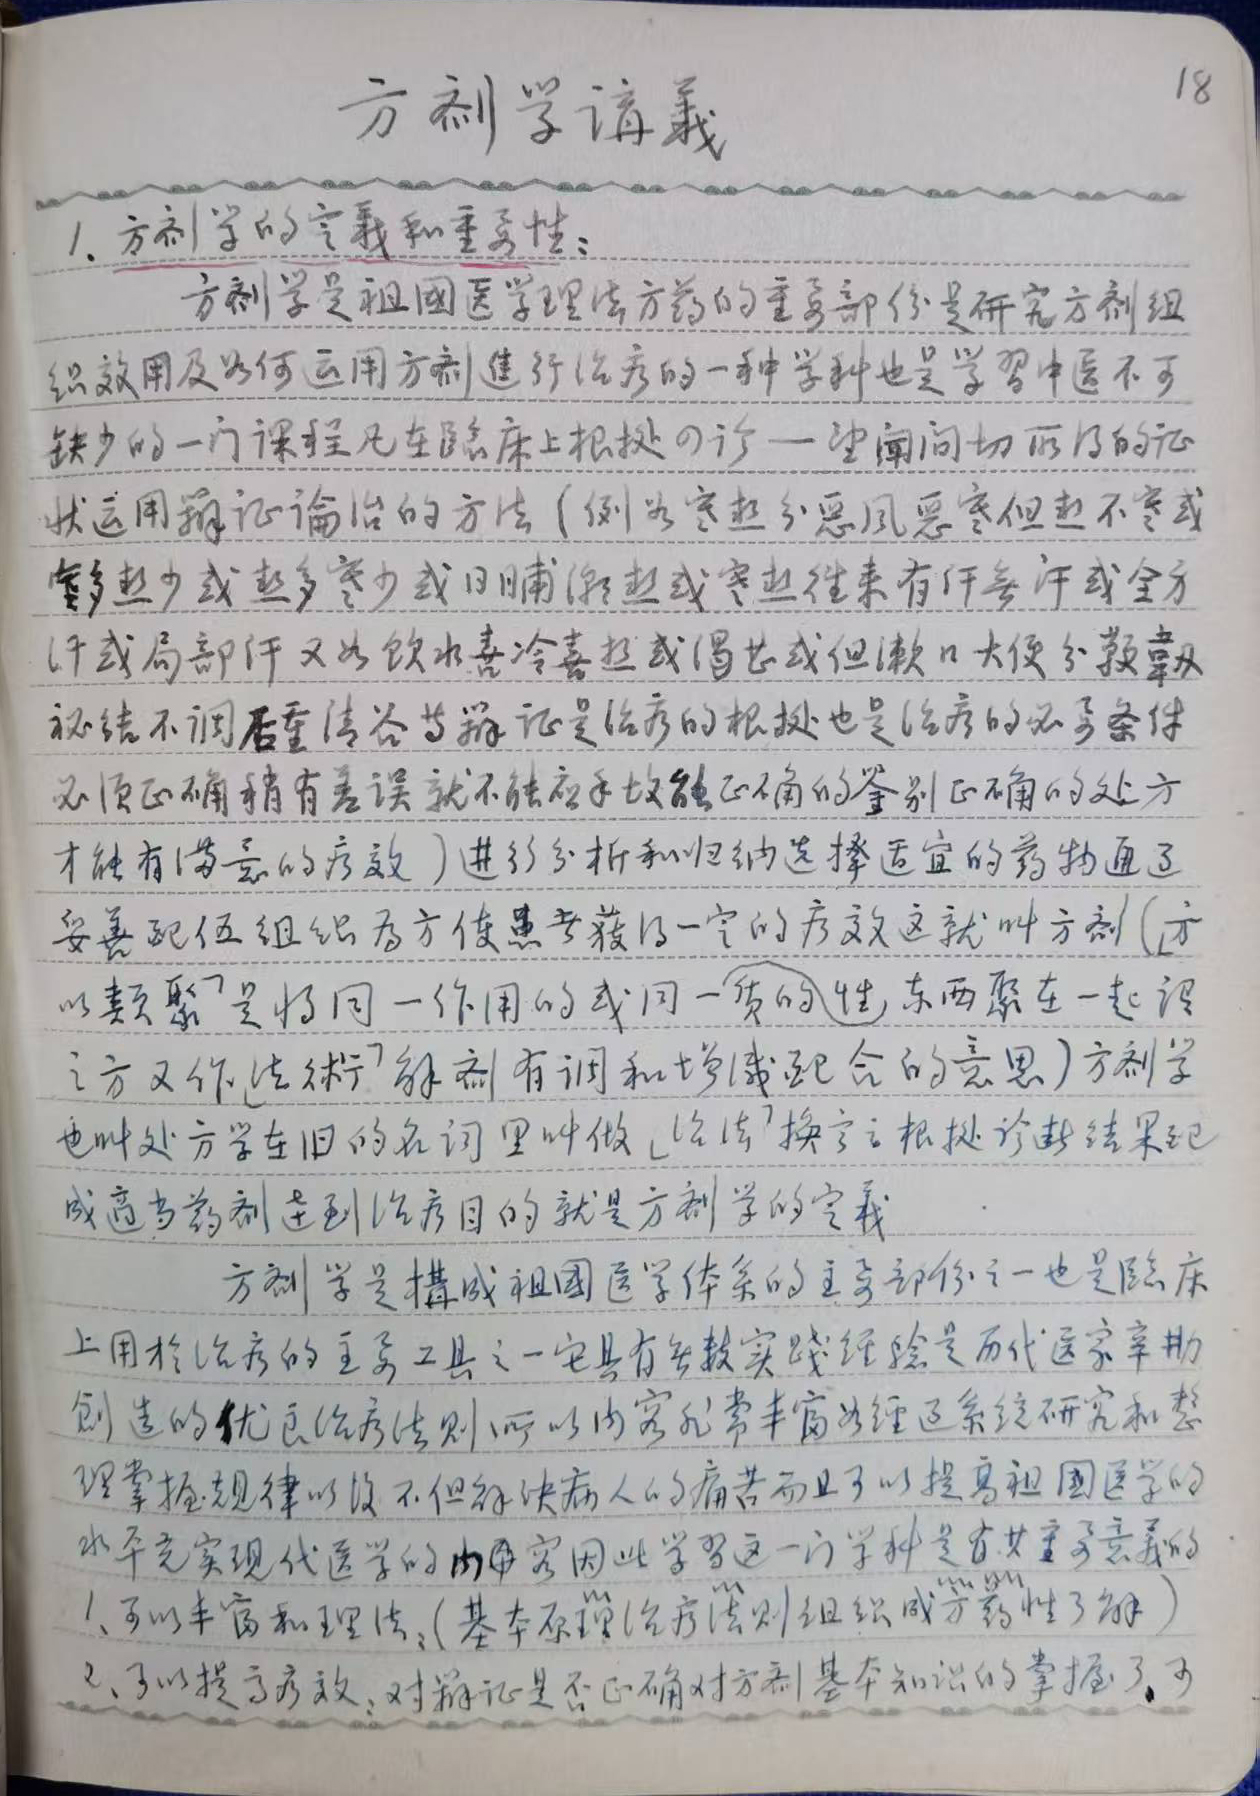 18
方剂学講義
1、方剂学的定義和重要性：
方剂学是祖國医学理法方药的重要部份是研究方剂组
织效用及如何运用方剂進行治疗的一种学科也是学習中医不可
缺少的一门课程凡在臨床上根据四诊一望闻问切所得的证
状运用辩证論治的方法(例如寒热分恶风恶寒但热不寒或
寒多热少或热多寒少或日晡潮热或寒热往来有汗無汗或全方
汗或局部汗又如飲水喜冷喜热或渴甚或但漱口大便分鞕韌
秘结不调后重清谷等辩证是治疗的根据也是治疗的必要条件
必须正确稍有差误就不能应手故能正确的鉴别正确的处方
才能有满意的疗效)进行分析和归纳选擇适宜的药物通过
妥善配伍组织為方使患者獲得一定的疗效这就叫方剂(「方
以类聚」是将同一作用的或同一质的性东西聚在一起謂
之方又作「法術」解剂有调和增减配合的意思)方剂学
也叫处方学在旧的名词里叫做「治法」换言之根据诊断结果配
成適当药剂达到治疗目的就是方剂学的定義
方剂学是構成祖國医学体系的主要部份之一也是臨床
上用於治疗的主要工具之一它具有無数实践经验是历代医家辛勤
創造的优良治疗法则所以内容非常丰富如经过系统研究和整
理掌握规律以後不但解决病人的痛苦而且可以提高祖國医学的
水平充实现代医学的内容因此学習这一门学科是有其重要意義的
1、可以丰富和理法:(基本原理治疗法则组织成方药性了解)
2、可以提高疗效:对辩证是否正确对方剂基本知识的掌握了,可